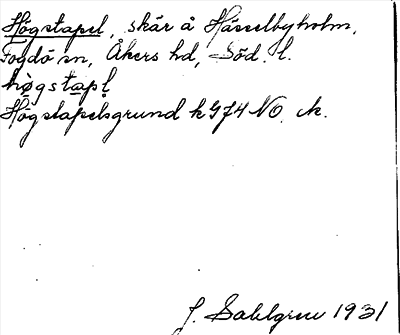 Högstapel, skär å Hässelbyholm,
Fogdö sn, Åkers hd, Söd. l.
hø̀gstapl̥
Högstapelsgrund k 974 NO. ek.
J. Sahlgren 1931